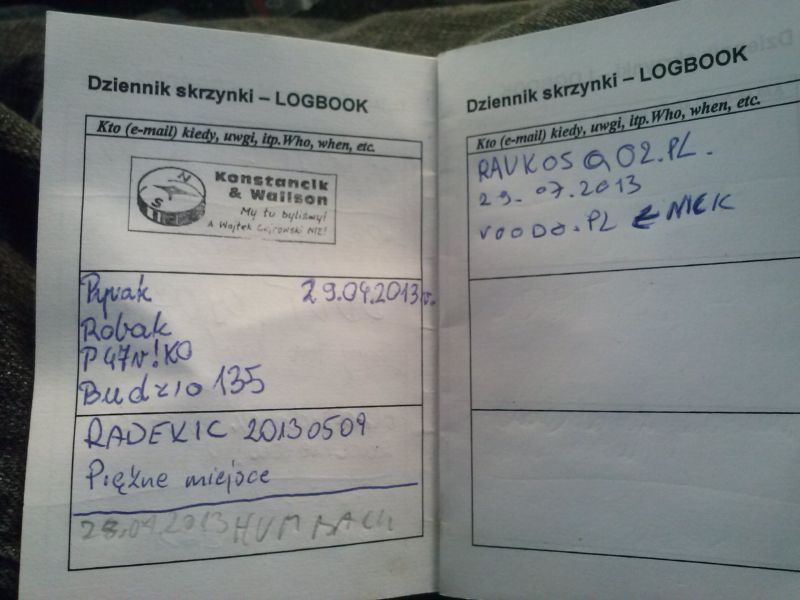 Dziennik skrzynki – LOGBOOK
Kto (e-mail) kiedy, uwgi, itp.Who, when, etc.
N
S
Konstancik
& Wallson
My tu byliśmy!
A Wojtek Cejrowski NIE!
29.04.2013r.
Robak
P47r!KO
Budzio 135
RADEKIC 20130509
Piękne miejsce
28.04.2013 HUMBACK
Dziennik skrzynki – LOGBOOK
Kto (e-mail) kiedy, uwgi, itp.Who, when, etc.
RAVKOS@O2.PL.
29.07.2013
VOODO.PL ← NICK